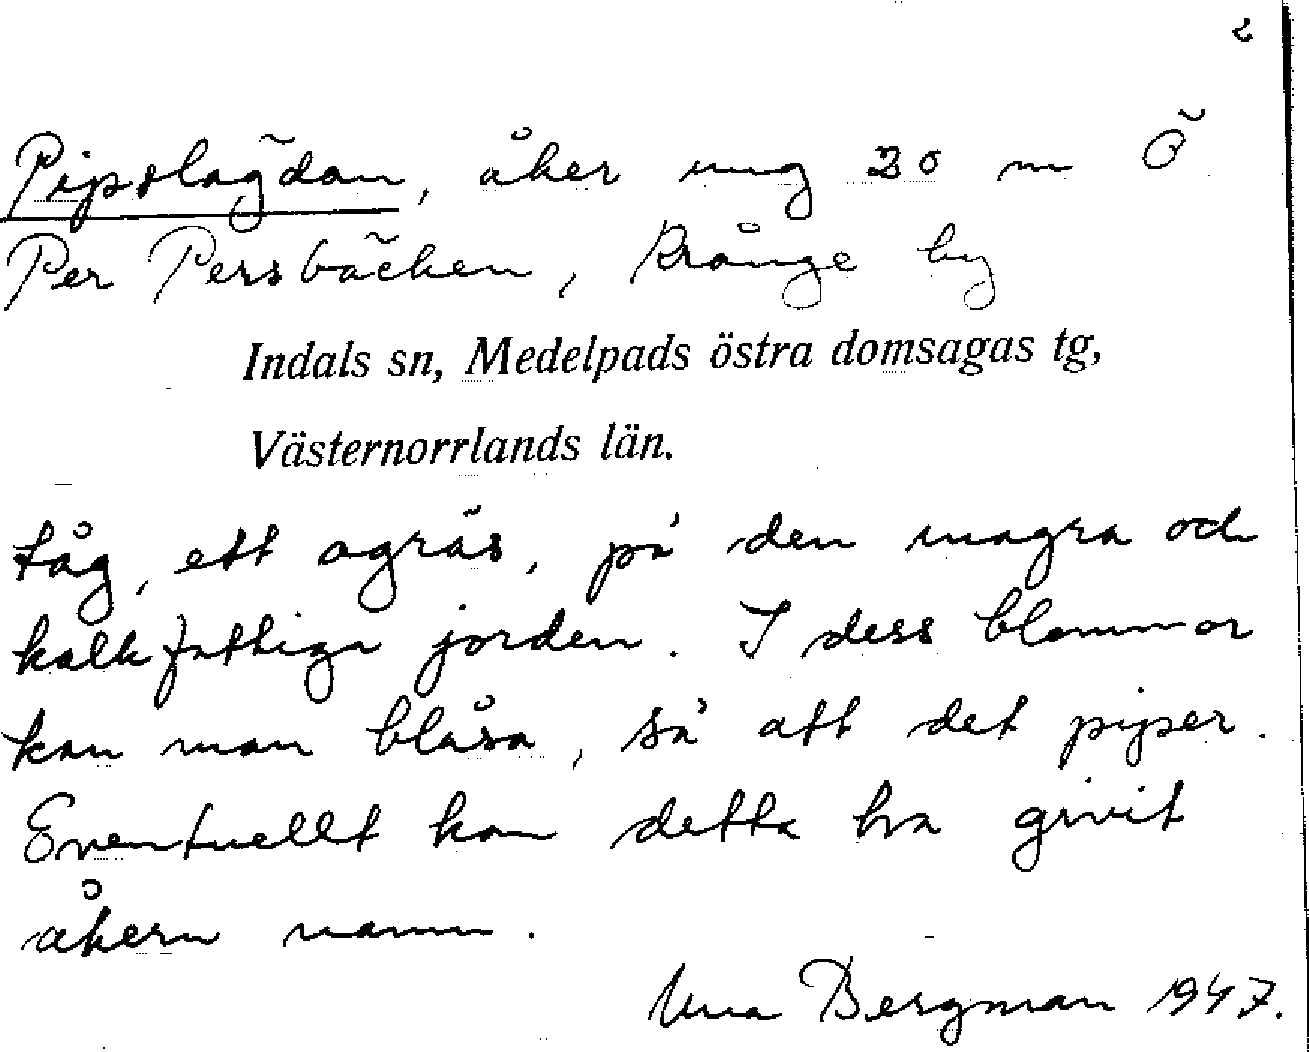 2
Pipslägdan, åker ung 20 m Ö
Per Persbäcken, Kränge by
Indals sn, Medelpads östra domsagas tg,
Västernorrlands län.
tåg, ett ogräs, på den magra och
kalkfattiga jorden. I dess blommor
kan man blåsa, så att det piper.
Eventuellt kan detta ha givit
åkern namn.
Una Bergman 1947.